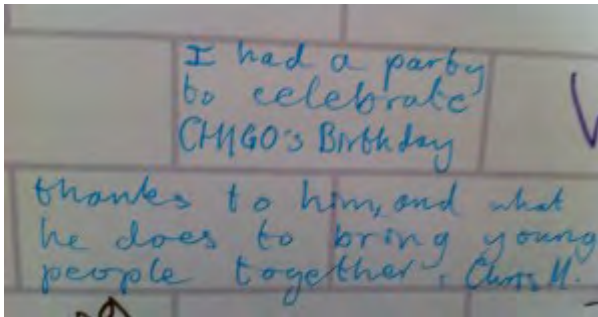 I had a party
to celebrate
CHIGO's Birthday
thanks to him, and what
he does to bring young
people together. Chris M.